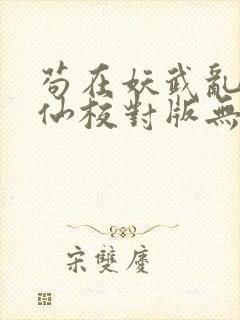 苟在妖武亂
仙校對版無
宋雙慶